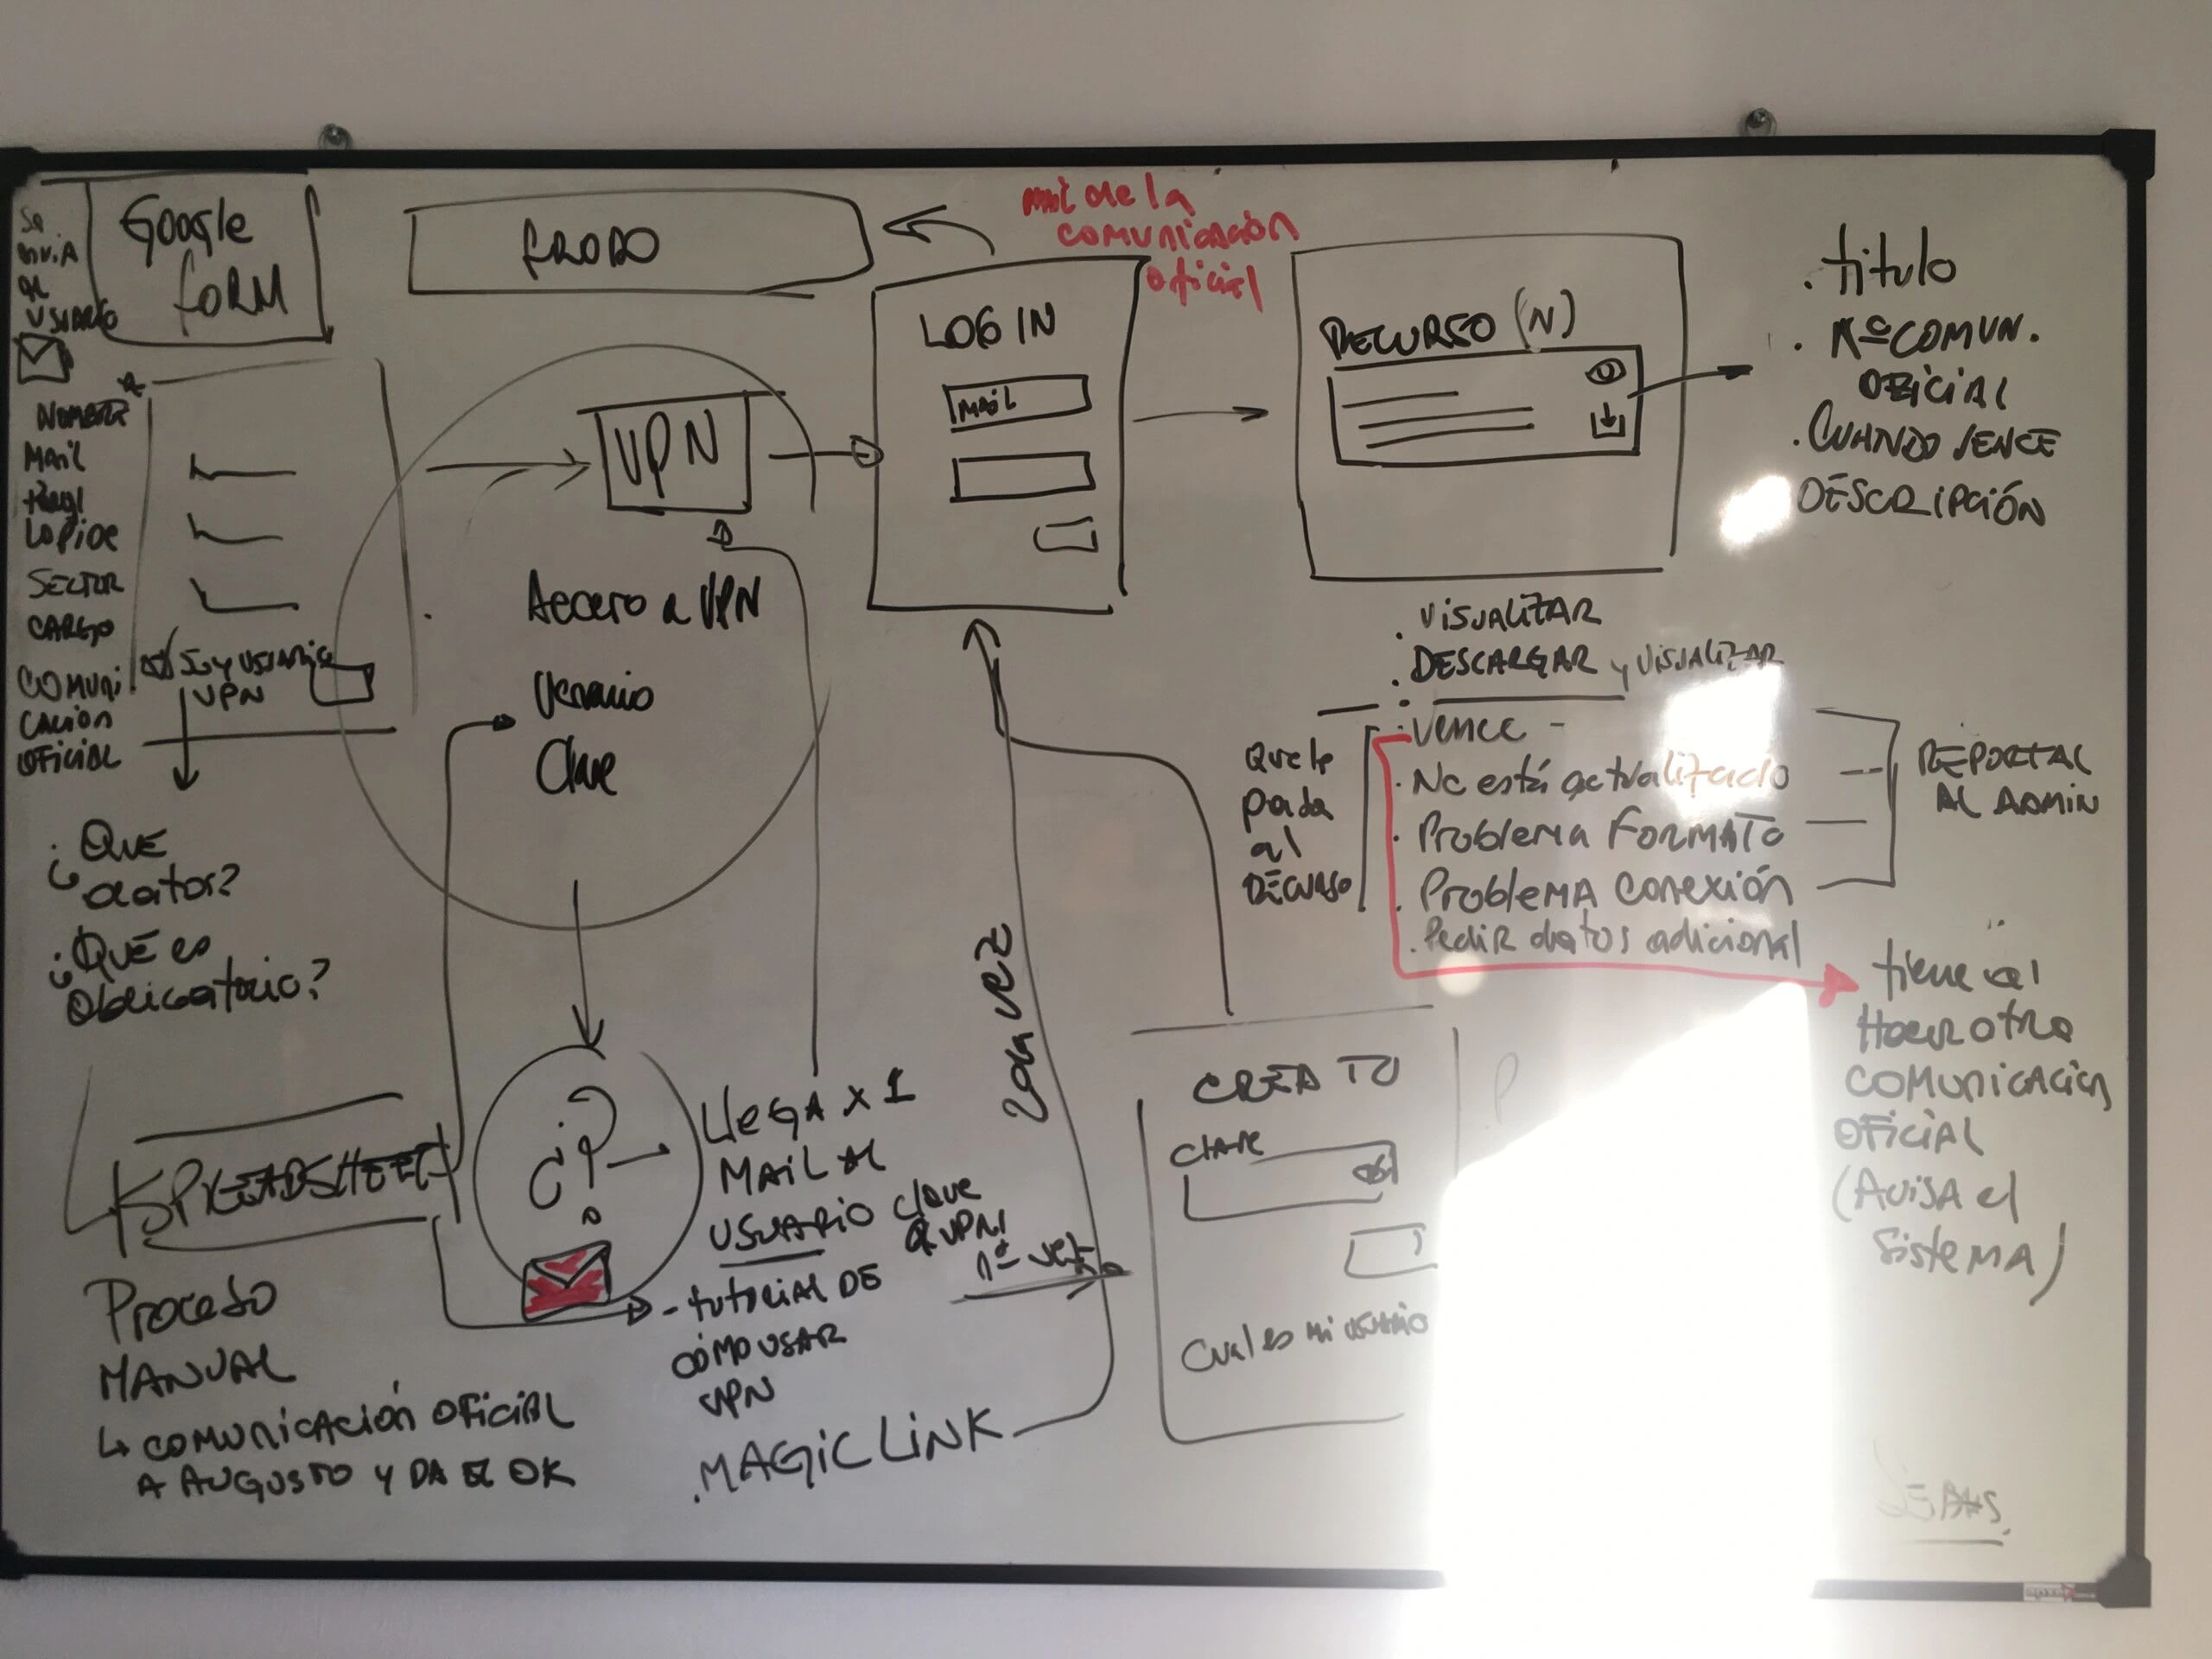 Se
envia
al
usuario
Google
FORM
FRODO
mail de la
comunicación
oficial
LOGIN
MAIL
RECURSO (N)
. titulo
. Nº COMUN.
OFICIAL
. CUANDO VENCE
DESCRIPCIÓN
NOMBRE
Mail
SECTOR
CARGO
COMUNI
CACION
OFICIAL
Soy usuario
VPN
VPN
Acceso a VPN
Usuario
Clave
¿QUE
datos?
¿QUÉ es
Obligatorio?
. VISUALIZAR
. DESCARGAR y VISUALIZAR
Que le
pasa
al
RECURSO
. Vence -
. No está actualizado
. Problema FORMATO
. Problema conexión
. Pedir datos adicional
REPORTAR
AL ADMIN
tiene que
Hacer otra
COMUNICACION
OFICIAL
(AVISA el
SISTEMA)
SPREADSHEET
Proceso
MANUAL
↳ COMUNICACIÓN OFICIAL
A AUGUSTO Y DA EL OK
¿?
LLEGA x 1
MAIL AL
USUARIO clave
VPN
- tutorial DE
COMO USAR
VPN
. MAGIC LINK
1ª vez
2da vez
CREA TU
CLAVE
Cual es mi usuario